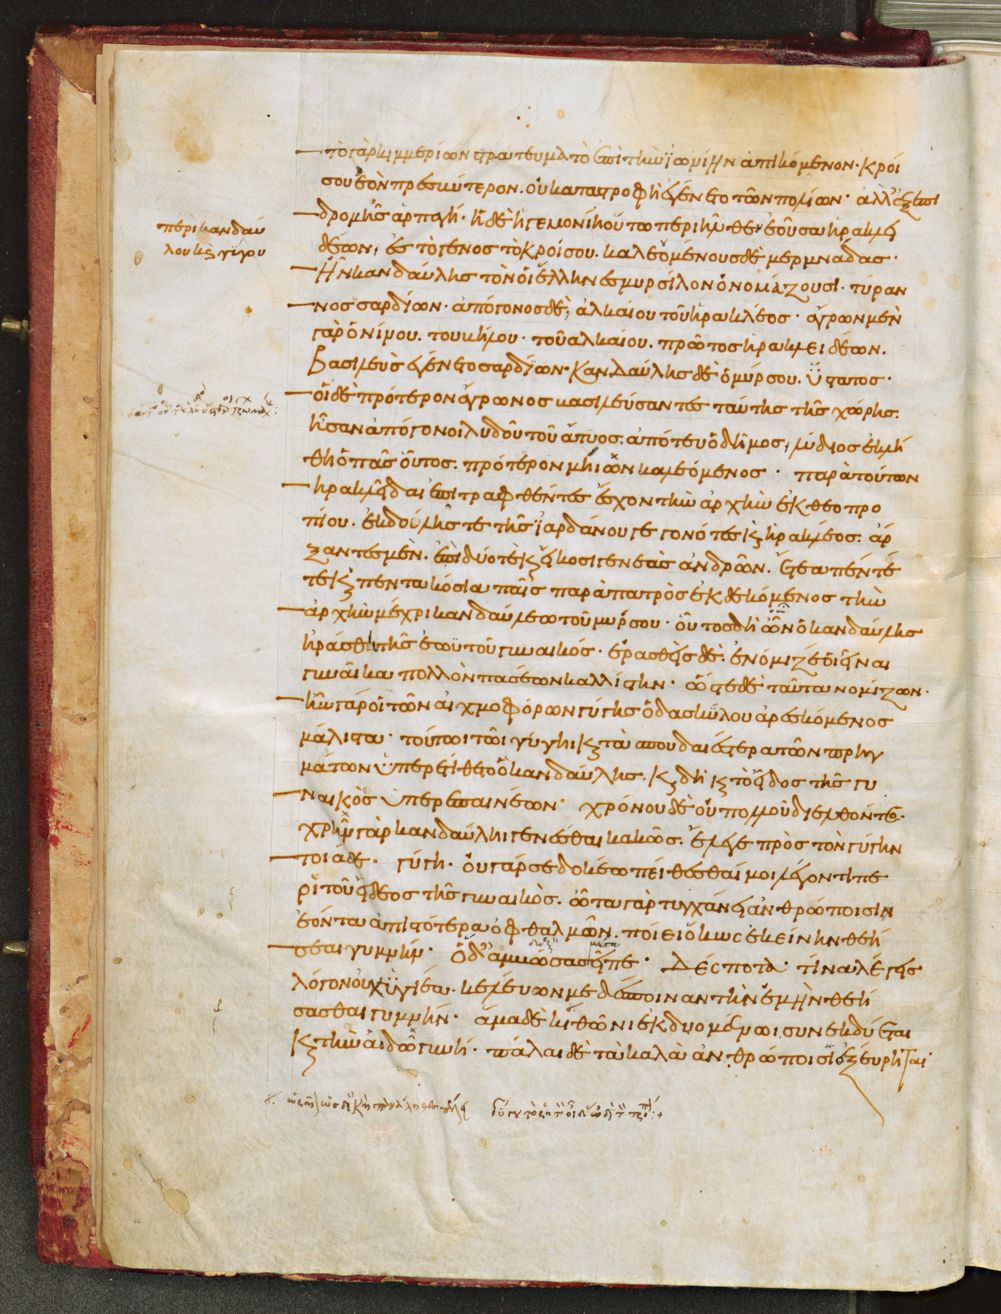 τὸ γὰρ κιμμερίων στράτευμα τὸ ἐπὶ τὴν ἰωνίην ἀπικόμενον· κροί
σου ἐὸν πρεσβύτερον. οὐ καταστροφὴ ἐγένετο τῶν πολίων· ἀλλ' ἐξ ἐπι
δρομῆς ἁρπαγή· ἡ δὲ ἡγεμονίη οὕτω περιῆλθεν ἐοῦσα ἡρακλει
περὶ κανδαύ
λου κ γύγου
δέων, ἐς τὸ γένος τὸ κροίσου. καλεομένους δὲ μερμνάδας·
ἦν κανδαύλης τὸν οἱ ἕλληνες μυρσίλον ὀνομάζουσι· τύραν
νος σαρδίων· ἀπόγονος δὲ, ἀλκαίου τοῦ ἡρακλέος· ἄγρων μὲν
γὰρ ὁ νίνου. του βήλου. τοῦ αλκαίου. πρῶτος ἡρακλειδέων.
βασιλεὺς ἐγένετο σαρδίων· κανδαύλης δὲ ὁ μύρσου. ὕστατος·
οἱ δὲ πρότερον ἄγρωνος βασιλεύσαντες ταύτης τῆς χώρης.
ἦσαν ἀπόγονοι λυδοῦ τοῦ ἄτυος. ἀπό τευ ὁ δῆμος, λύδιος ἐκλή
θη ὁ πᾶς οὗτος. πρότερον μηίων καλεόμενος· παρὰ τούτων
ἡρακλεῖδαι ἐπιτραφθέντες ἔσχον τὴν ἀρχὴν ἐκ θεοπρο
πίου. ἐκ δούλης τε τῆς ἰαρδάνου γεγονότες κ ἡρακλέος. ἄρ
ξαντες μὲν. ἐπὶ δύο τὲ κ εἴκοσι γενεὰς ἀνδρῶν. ἔτεα πέντέ
τε κ πεντακόσια παῖς παρὰ πατρὸς ἐκδεκόμενος τὴν
ἀρχὴν μέχρι κανδαύλεω τοῦ μύρσου· οὗτος δὴ ὦν ὁ κανδαύλης
ἠράσθη τῆς ἑωϋτοῦ γυναικός· ἐρασθεὶς δὲ. ἐνόμιζέ οἱ εἶναι
γυναῖκα πολλὸν πασέων καλλίστην· ὥστε δὲ ταῦτα νομίζων·
ἦν γάρ οἱ τῶν αἰχμοφόρων γύγης ὁ δασκύλου ἀρεσκόμενος
μάλιστα· τούτωι τῶι γύγηι κ τὰ σπουδαιέστερα τῶν πρηγ
μάτων ὑπερετίθετο ὁ κανδαύλης. κ δὴ κ τὸ εἶδος τῆς γυ
ναικὸς ὑπερεπαινέων· χρόνου δὲ οὐ πολλοῦ διελθόντος·
χρῆν γὰρ κανδαύληι γενέσθαι κακῶς. ἔλεγε πρὸς τὸν γύγην
τοιάδε. γύγη· οὐ γάρ σε δοκέω πείθεσθαί μοι λέγοντι πε
ρὶ τοῦ εἴδεος τῆς γυναικὸς. ὦτα γὰρ τυγχάνει ἀνθρώποισιν
ἐόντα ἀπιστότερα ὀφθαλμῶν. ποίει ὅκως ἐκείνην θεή
σεαι γυμνήν· ὁ δ' ἀμβώσας εἶπε· Δέσποτα· τίνα λέγεις
λόγον οὐχ ὑγιέα· κελεύων με δέσποιναν τὴν ἐμὴν θεή
σασθαι γυμνήν· ἅμα δὲ κιθῶνι ἐκδυομένωι συνεκδύεται
κ τὴν αἰδῶ γυνή· πάλαι δὲ τὰ καλὰ ἀνθρώποισι ἐξεύρηται·